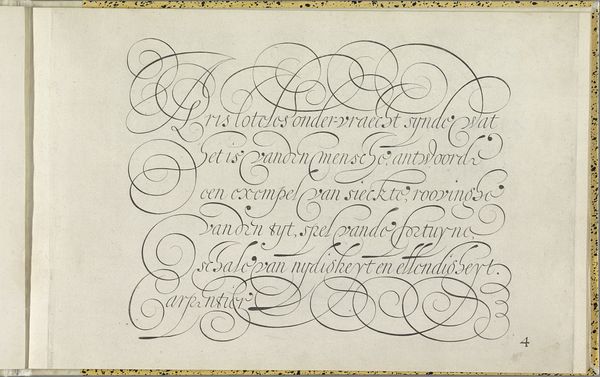 Aristoteles ondervraecht synde, wat
het is vanden mensche, antwoorde
een exempel van sieckte, roovinghe
vanden tyt, spel vande fortuyne
schale van nydigheyt en ellendigheyt.
Carpentier
4